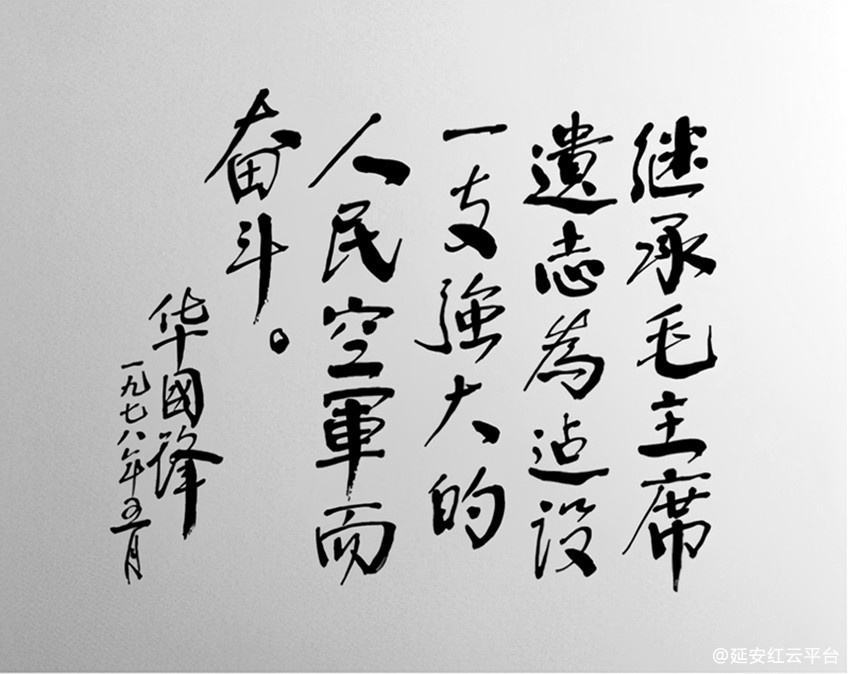 继承毛主席
遺志為迠设
一支強大的
人民空軍而
奋斗。
华國锋
一九七八年五月
@延安红云平台